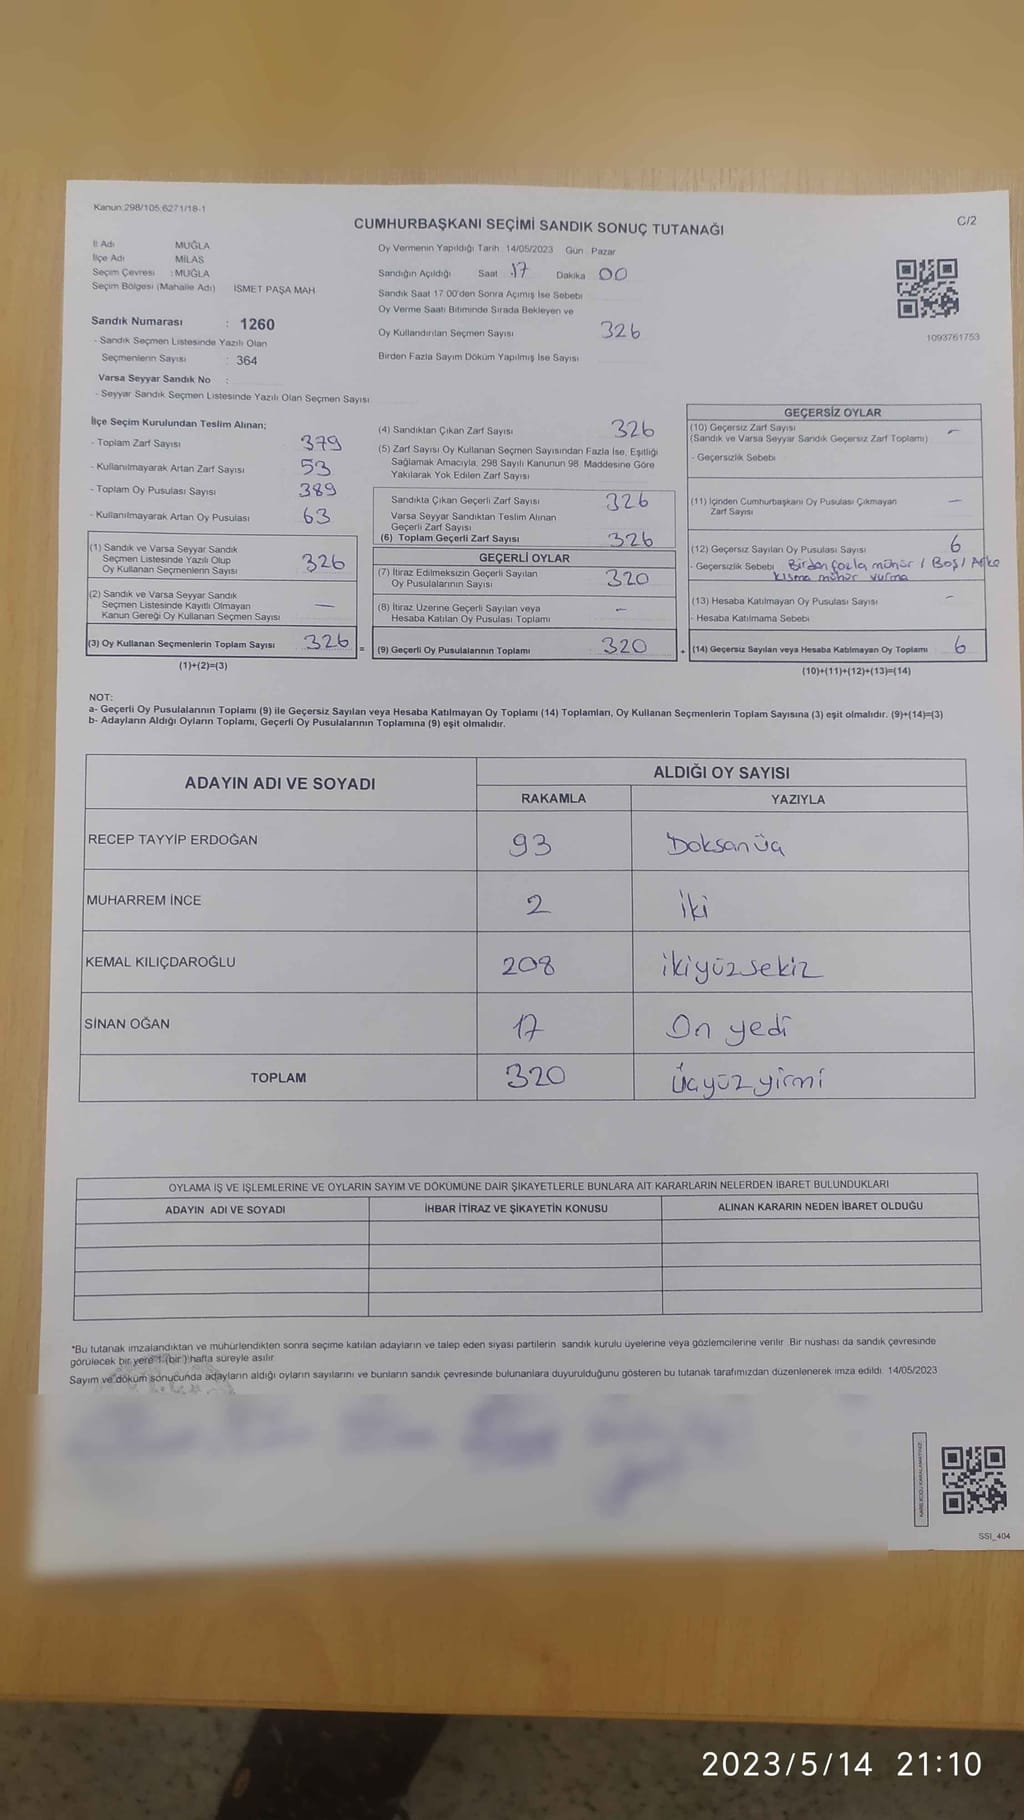 Kanun:298/105,6271/18-1
C/2
CUMHURBAŞKANI SEÇİMİ SANDIK SONUÇ TUTANAĞI
İl Adı MUĞLA
İlçe Adı MİLAS
Seçim Çevresi : MUĞLA
Seçim Bölgesi (Mahalle Adı) İSMET PAŞA MAH
Sandık Numarası : 1260
- Sandık Seçmen Listesinde Yazılı Olan
Seçmenlerin Sayısı : 364
Varsa Seyyar Sandık No :
- Seyyar Sandık Seçmen Listesinde Yazılı Olan Seçmen Sayısı
Oy Vermenin Yapıldığı Tarih 14/05/2023 Gün Pazar
Sandığın Açıldığı Saat 17 Dakika 00
Sandık Saat 17:00'den Sonra Açımış İse Sebebi
Oy Verme Saati Bitiminde Sırada Bekleyen ve
Oy Kullandırılan Seçmen Sayısı 326
Birden Fazla Sayım Döküm Yapılmış İse Sayısı
1093761753
İlçe Seçim Kurulundan Teslim Alınan;
- Toplam Zarf Sayısı 379
- Kullanılmayarak Artan Zarf Sayısı 53
- Toplam Oy Pusulası Sayısı 389
- Kullanılmayarak Artan Oy Pusulası 63
(1) Sandık ve Varsa Seyyar Sandık
Seçmen Listesinde Yazılı Olup
Oy Kullanan Seçmenlerin Sayısı 326
(2) Sandık ve Varsa Seyyar Sandık
Seçmen Listesinde Kayıtlı Olmayan
Kanun Gereği Oy Kullanan Seçmen Sayısı —
(3) Oy Kullanan Seçmenlerin Toplam Sayısı 326 =
(1)+(2)=(3)
(4) Sandıktan Çıkan Zarf Sayısı 326
(5) Zarf Sayısı Oy Kullanan Seçmen Sayısından Fazla İse, Eşitliği
Sağlamak Amacıyla, 298 Sayılı Kanunun 98. Maddesine Göre
Yakılarak Yok Edilen Zarf Sayısı
Sandıkta Çıkan Geçerli Zarf Sayısı 326
Varsa Seyyar Sandıktan Teslim Alınan
Geçerli Zarf Sayısı
(6) Toplam Geçerli Zarf Sayısı 326
GEÇERLİ OYLAR
(7) İtiraz Edilmeksizin Geçerli Sayılan
Oy Pusulasının Sayısı 320
(8) İtiraz Üzerine Geçerli Sayılan veya
Hesaba Katılan Oy Pusulası Toplamı —
(9) Geçerli Oy Pusulalarının Toplamı 320 +
GEÇERSİZ OYLAR
(10) Geçersiz Zarf Sayısı —
(Sandık ve Varsa Seyyar Sandık Geçersiz Zarf Toplamı)
- Geçersizlik Sebebi
(11) İçinden Cumhurbaşkanı Oy Pusulası Çıkmayan —
Zarf Sayısı
(12) Geçersiz Sayılan Oy Pusulası Sayısı 6
- Geçersizlik Sebebi Birden fazla mühür / Boş / Arka
kısma mühür vurma
(13) Hesaba Katılmayan Oy Pusulası Sayısı —
- Hesaba Katılmama Sebebi
(14) Geçersiz Sayılan veya Hesaba Katılmayan Oy Toplamı 6
(10)+(11)+(12)+(13)=(14)
NOT:
a- Geçerli Oy Pusulalarının Toplamı (9) ile Geçersiz Sayılan veya Hesaba Katılmayan Oy Toplamı (14) Toplamları, Oy Kullanan Seçmenlerin Toplam Sayısına (3) eşit olmalıdır. (9)+(14)=(3)
b- Adayların Aldığı Oyların Toplamı, Geçerli Oy Pusulalarının Toplamına (9) eşit olmalıdır.
ADAYIN ADI VE SOYADI ALDIĞI OY SAYISI
RAKAMLA YAZIYLA
RECEP TAYYİP ERDOĞAN 93 Doksanüç
MUHARREM İNCE 2 iki
KEMAL KILIÇDAROĞLU 208 ikiyüzsekiz
SİNAN OĞAN 17 On yedi
TOPLAM 320 Üçyüz yirmi
OYLAMA İŞ VE İŞLEMLERİNE VE OYLARIN SAYIM VE DÖKÜMÜNE DAİR ŞİKAYETLERLE BUNLARA AİT KARARLARIN NELERDEN İBARET BULUNDUKLARI
ADAYIN ADI VE SOYADI İHBAR İTİRAZ VE ŞİKAYETİN KONUSU ALINAN KARARIN NEDEN İBARET OLDUĞU
*Bu tutanak imzalandıktan ve mühürlendikten sonra seçime katılan adayların ve talep eden siyasi partilerin sandık kurulu üyelerine veya gözlemcilerine verilir. Bir nüshası da sandık çevresinde
görülecek bir yere 1 (bir) hafta süreyle asılır.
Sayım ve döküm sonucunda adayların aldığı oyların sayılarını ve bunların sandık çevresinde bulunanlara duyurulduğunu gösteren bu tutanak tarafımızdan düzenlenerek imza edildi. 14/05/2023
SSI_404
2023/5/14 21:10